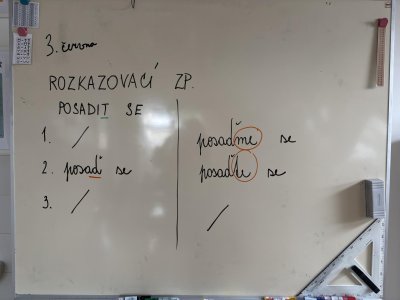 3. června
ROZKAZOVACÍ ZP.
POSADIT SE
1. / posaďme se
2. posaď se posaďte se
3. / /